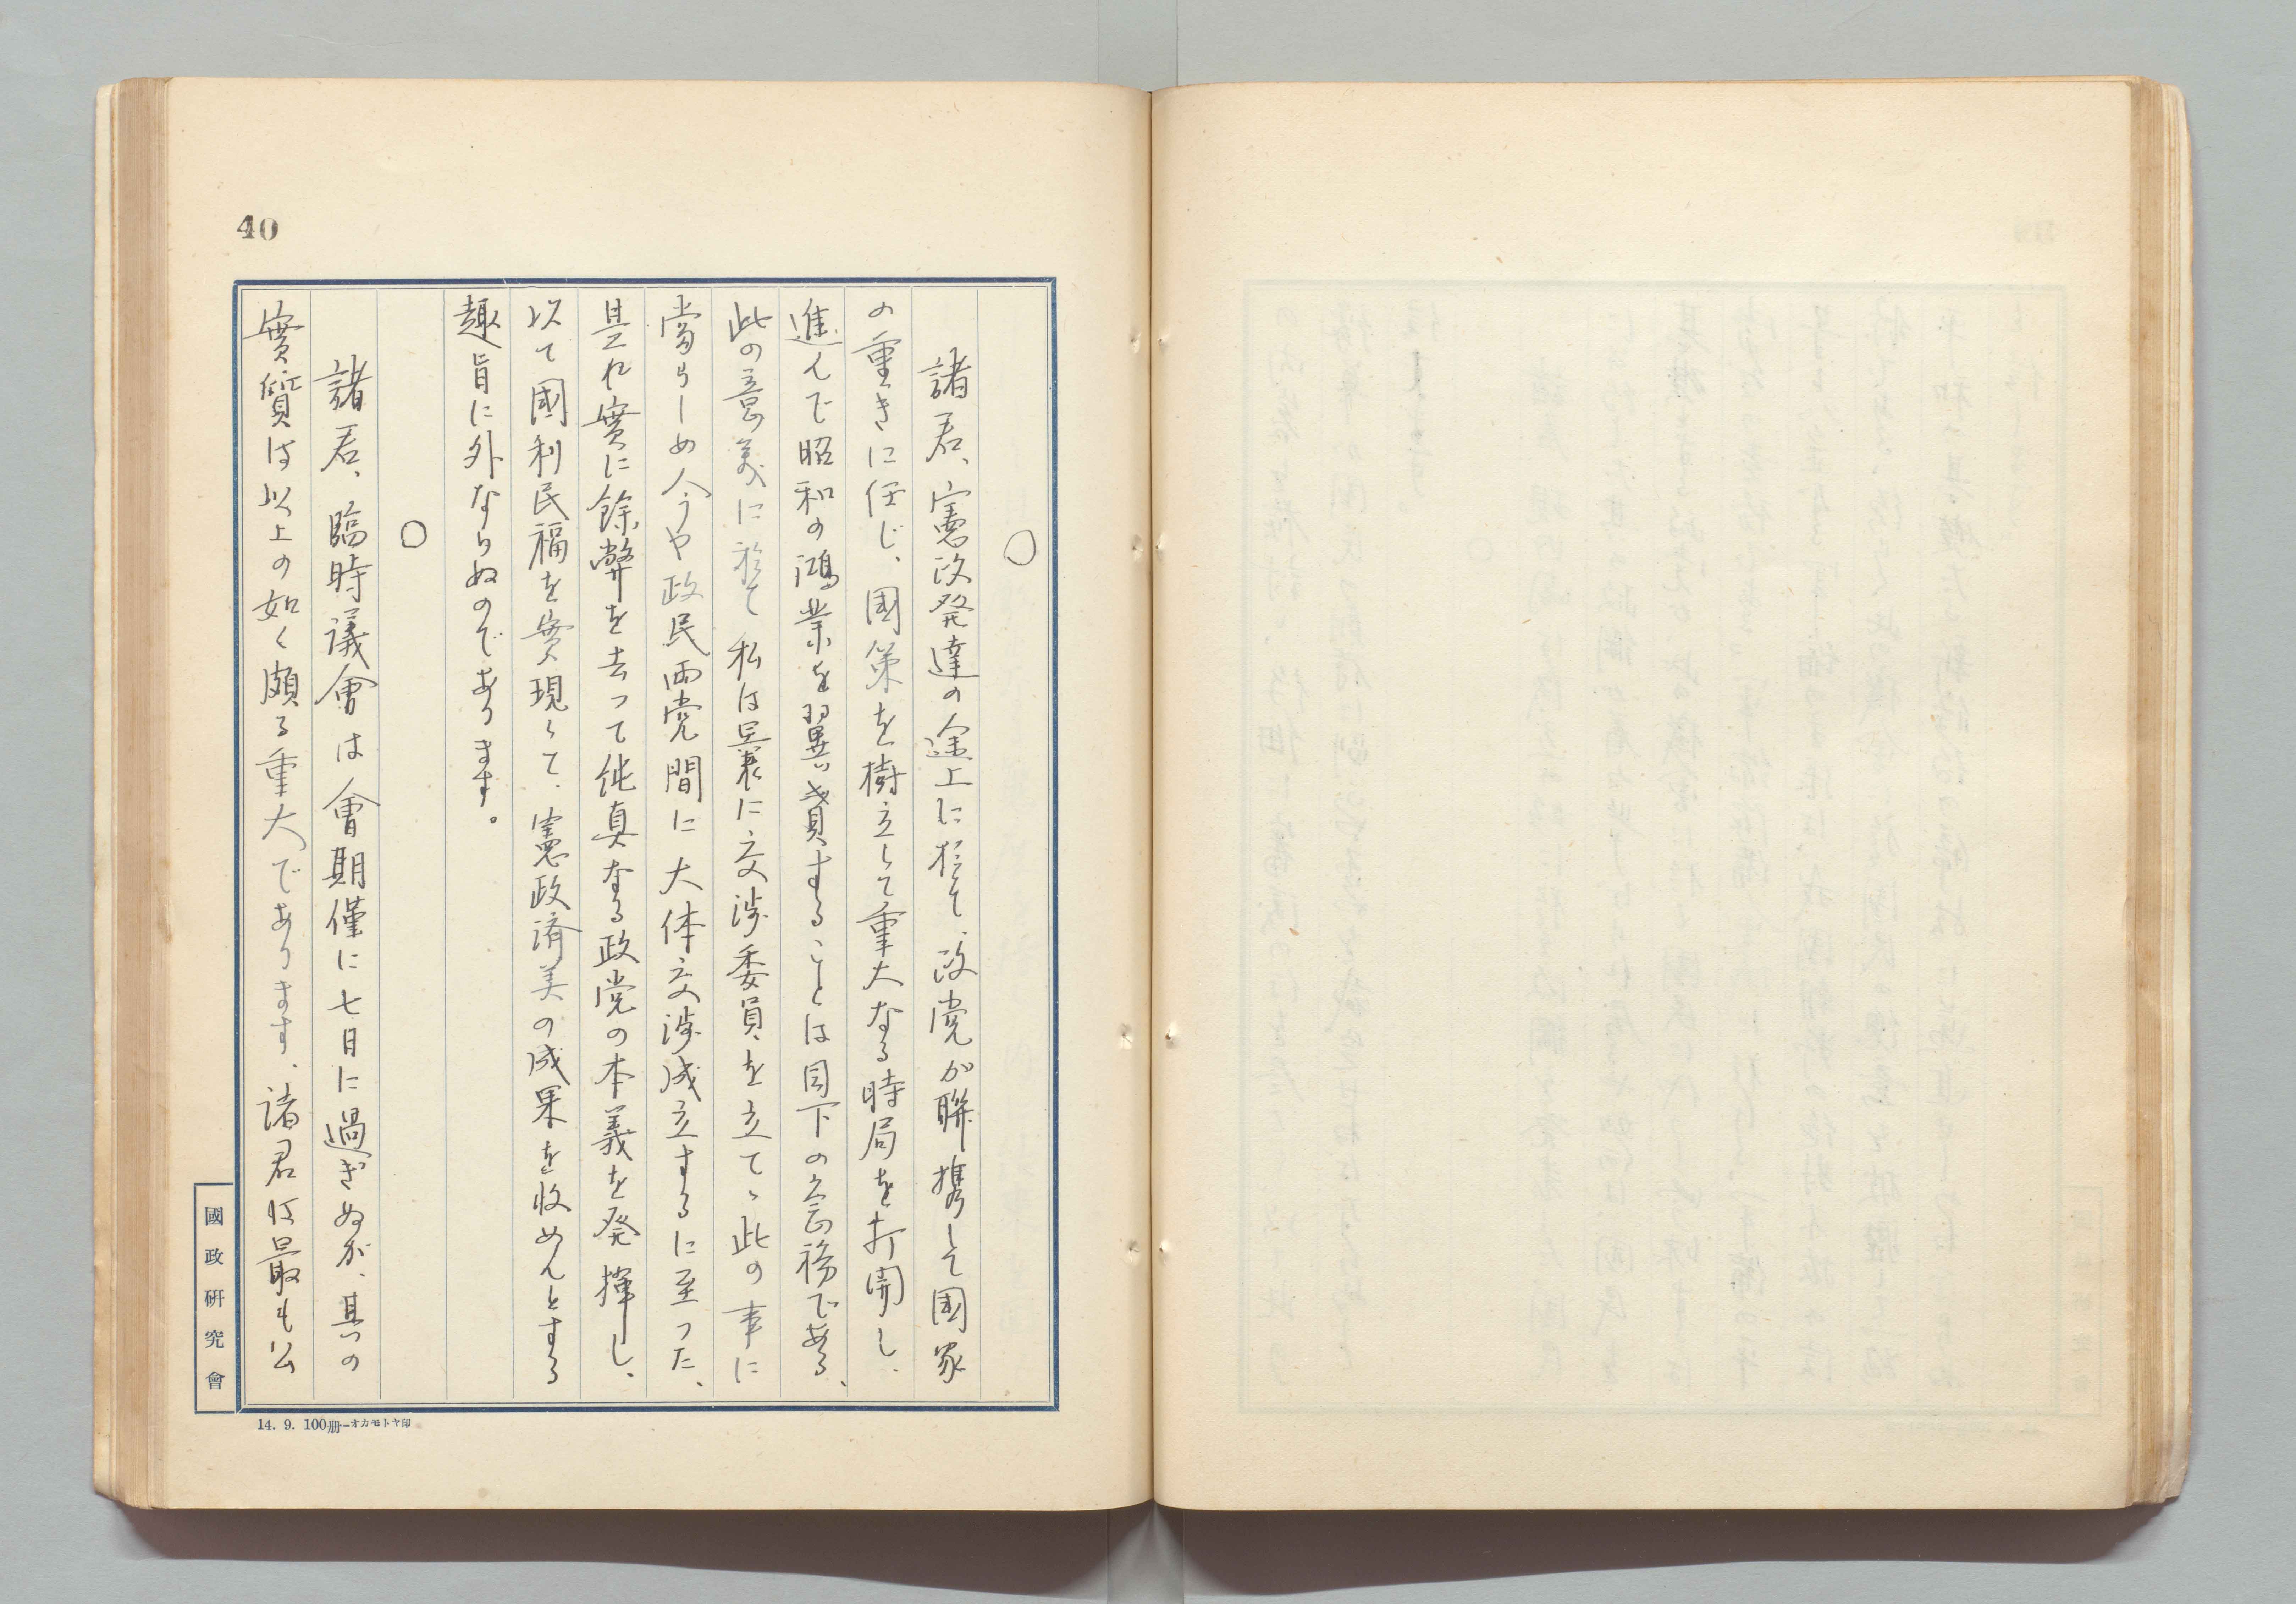 40
○
諸君、憲政発達の途上に於て、政党が聯携して国家
の重きに任じ、国策を樹立して重大なる時局を打開し、
進んで昭和の鴻業を翼賛することは目下の急務である、
此の意義に於て私は曩に交渉委員を立て、此の事に
當らしめ今や政民両党間に大体交渉成立するに至った、
是れ實に餘弊を去って純真なる政党の本義を発揮し、
以て國利民福を實現して、憲政済美の成果を収めんとする
趣旨に外ならぬのであります。
○
諸君、臨時議會は會期僅に七日に過ぎぬが、其の
實質は以上の如く頗る重大であります、諸君は最も公
國政研究會
14. 9. 100冊—オカモトヤ印